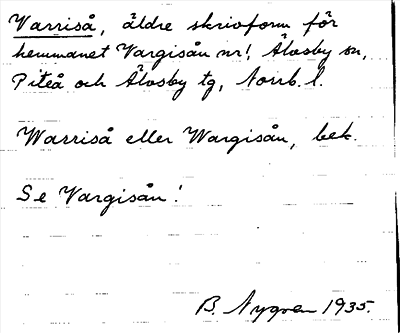 Varriså, äldre skrivform för
hemmanet Vargisån nr 1, Älvsby sn,
Piteå och Älvsby tg, Norrb. l.
Warriså eller Wargisån, bek.
Se Vargisån!
B. Nygren 1935.